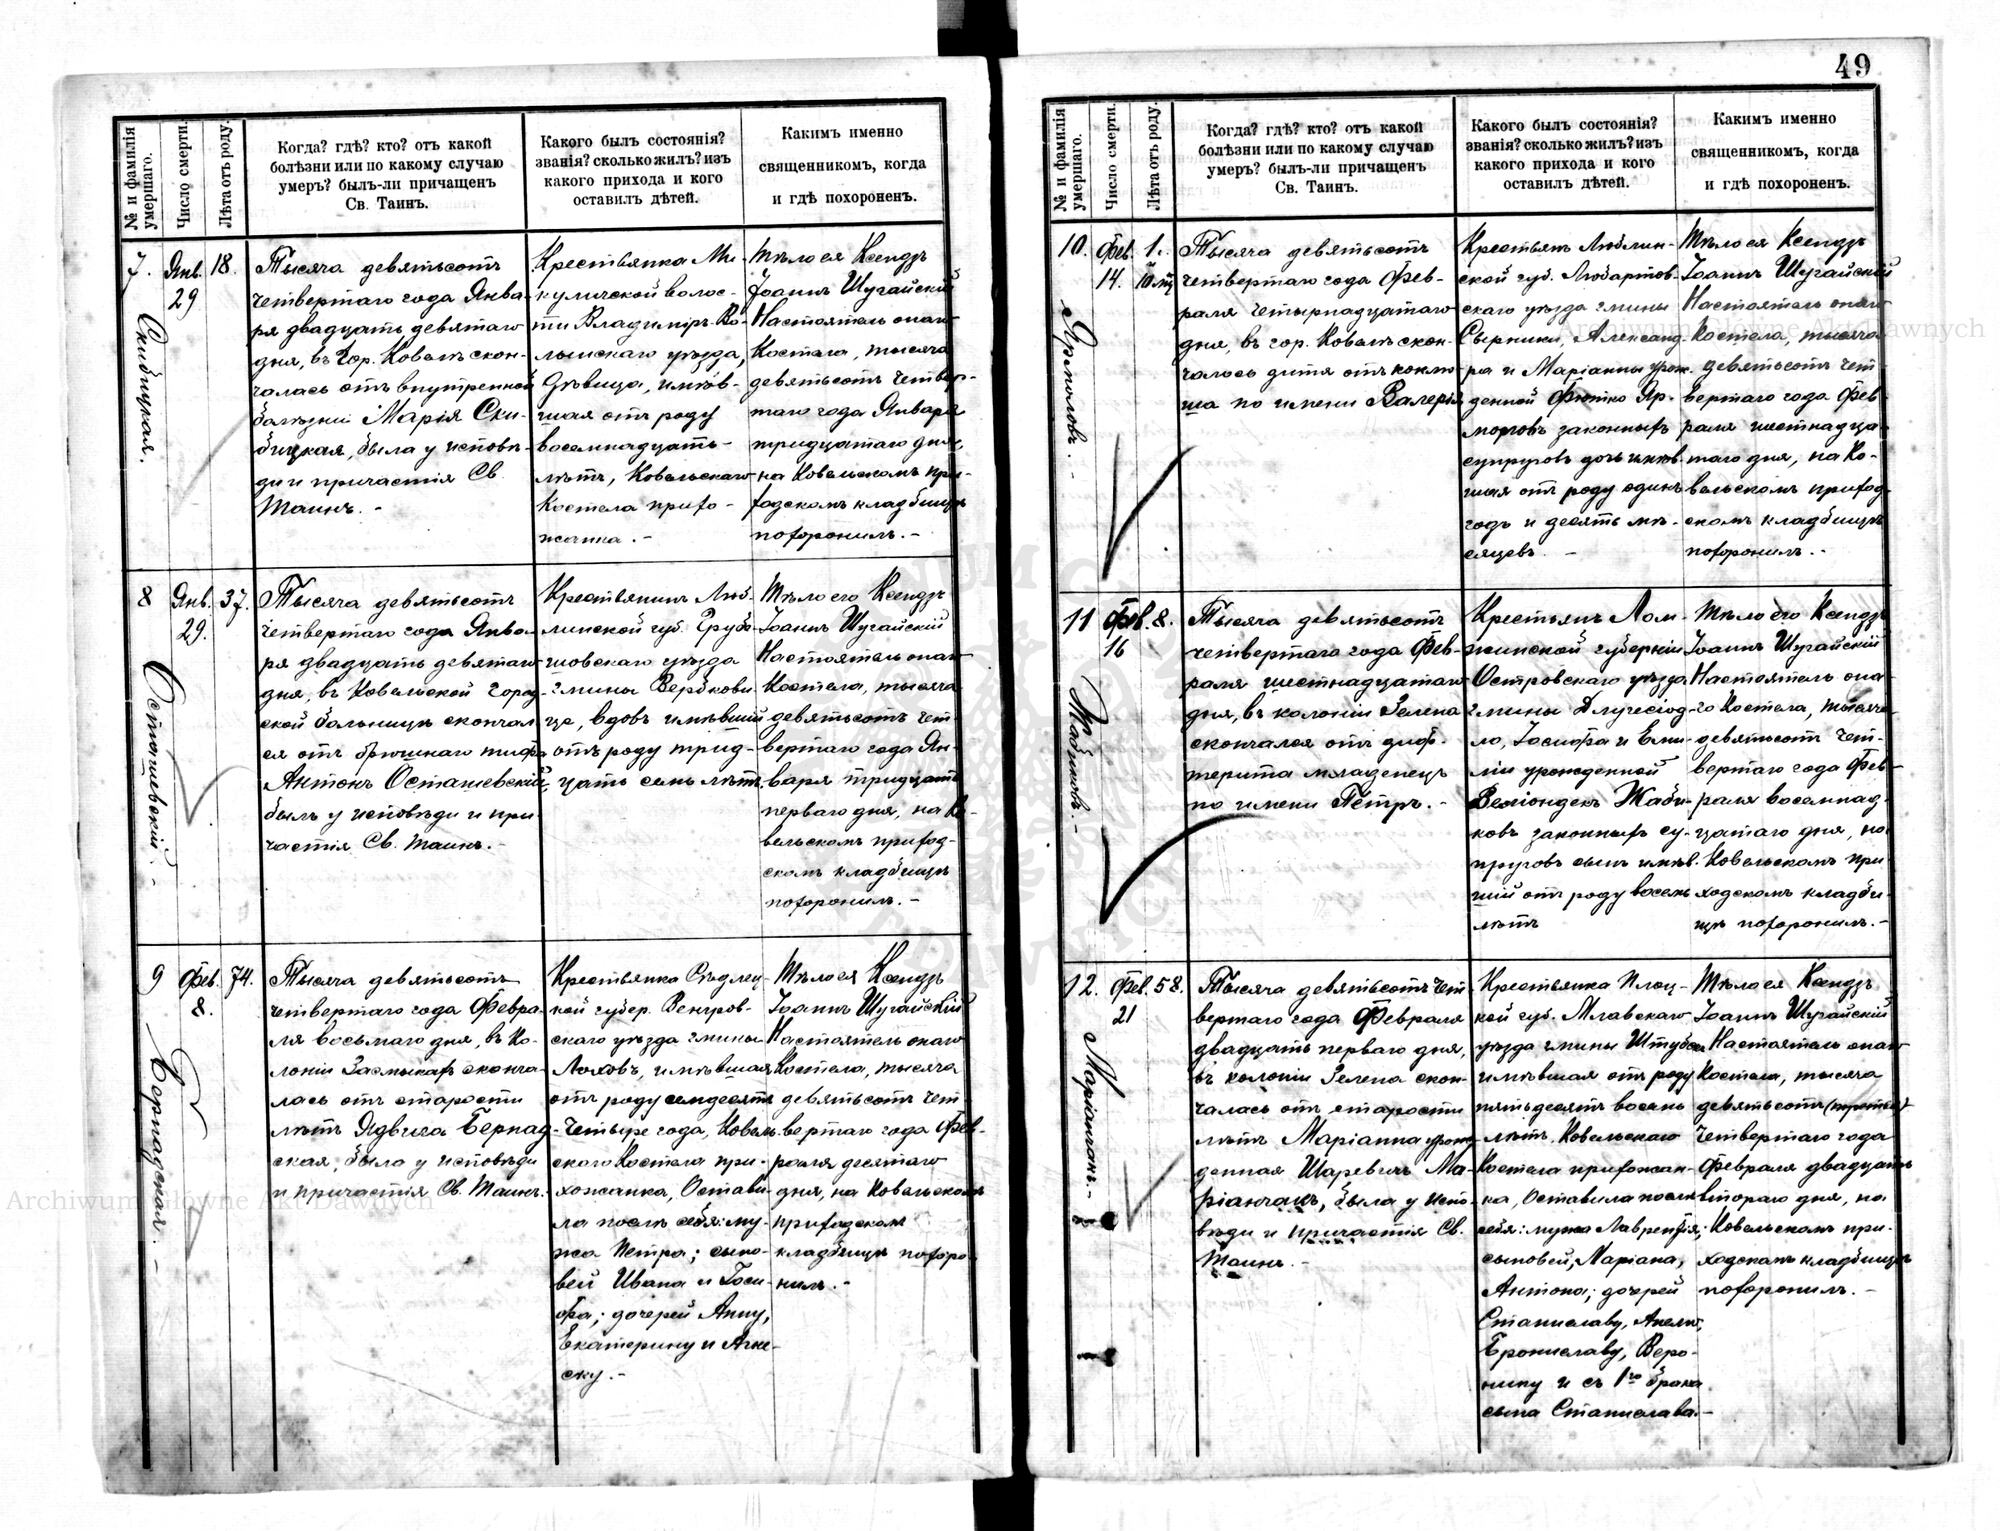 49
№ и фамилія умершаго.
Число смерти.
Лѣта отъ роду.
Когда? гдѣ? кто? отъ какой
болѣзни или по какому случаю
умеръ? былъ-ли причащенъ
Св. Таинъ.
Какого былъ состоянія?
званія? сколько жилъ? изъ
какого прихода и кого
оставилъ дѣтей.
Какимъ именно
священникомъ, когда
и гдѣ похороненъ.
7.
Скибицкая.
Янв.
29
18.
Тысяча девятьсотъ
четвертаго года Янва-
ря двадцать девятаго
дня, въ гор. Ковелѣ скон-
чалась отъ внутренной
болѣзни Марія Ски-
бицкая, была у исповѣ-
ди и причастія Св.
Таинъ. -
Крестьянка Ми-
куличской волос-
ти Владиміръ-Во-
лынскаго уѣзда,
Дѣвица, имѣв-
шая отъ роду
восемнадцать
лѣтъ, Ковельскаго
Костела прихо-
жанка. -
Тѣло ея Ксендзъ
Іоаннъ Шугайскій
Настоятель онаго
Костела, тысяча
девятьсотъ четвер-
таго года Января
тридцатаго дня,
на Ковельскомъ при-
ходскомъ кладбищѣ
похоронилъ. -
8
Осташевскій. -
Янв.
29.
37.
Тысяча девятьсотъ
четвертаго года Янва-
ря двадцать девятаго
дня, въ Ковельской город-
ской больницѣ скончал
ся отъ брюшнаго тифа
Антонъ Осташевскій,
былъ у исповѣди и при
частія Св. Таинъ. -
Крестьянинъ Люб-
линской губ. Грубе-
шовскаго уѣзда
гмины Вербкови-
це, вдовъ имѣвшій
отъ роду трид-
цать семь лѣтъ.
Тѣло его Ксендзъ
Іоаннъ Шугайскій
Настоятель онаго
Костела, тысяча
девятьсотъ чет-
вертаго года Ян-
варя тридцать
перваго дня, на Ко-
вельскомъ приход-
скомъ кладбищѣ
похоронилъ. -
9
Бернадская. -
Фев.
8.
74.
Тысяча девятьсотъ
четвертаго года Февра-
ля восьмаго дня, въ Ко-
лоніи Засмыкахъ сконча-
лась отъ старости
лѣтъ Ядвига Бернад-
ская, была у исповѣди
и причастія Св. Таинъ.
Крестьянка Сѣдлец-
кой губер. Венгров-
скаго уѣзда гмины
Лоховъ, имѣвшая
отъ роду семдесятъ
четыре года, Ковель-
скаго Костела при-
хожанка, Остави-
ла послѣ себя: му-
жа Петра; сыно-
вей Ивана и Іоси-
фа; дочерей Анну,
Екатерину и Агне-
ску. -
Тѣло ея Ксендзъ
Іоаннъ Шугайскій
Настоятель онаго
Костела, тысяча
девятьсотъ чет-
вертаго года Фев-
раля десятаго
дня, на Ковельскомъ
приходскомъ
кладбищѣ похоро-
нилъ. -
№ и фамилія умершаго.
Число смерти.
Лѣта отъ роду.
Когда? гдѣ? кто? отъ какой
болѣзни или по какому случаю
умеръ? былъ-ли причащенъ
Св. Таинъ.
Какого былъ состоянія?
званія? сколько жилъ? изъ
какого прихода и кого
оставилъ дѣтей.
Какимъ именно
священникомъ, когда
и гдѣ похороненъ.
10.
Ярмоговъ. -
Фев.
14.
1 г.
10 мѣ
Тысяча девятьсотъ
четвертаго года Фев-
раля четырнадцатаго
дня, въ гор. Ковелѣ скон-
чалось дитя отъ коклю
ша по имени Валерія
Крестьянъ Люблин-
ской губ. Любартов-
скаго уѣзда гмины
Сѣрники, Александ-
ра и Маріанны урож-
денной Фютко Яр-
моговъ законныхъ
супруговъ дочь имѣв-
шая отъ роду одинъ
годъ и десять мѣ-
сяцевъ. -
Тѣло ея Ксендзъ
Іоаннъ Шугайскій
Настоятель онаго
Костела, тысяча
девятьсотъ чет
вертаго года Фев-
раля шестнадца-
таго дня, на Ко-
вельскомъ приход-
скомъ кладбищѣ
похоронилъ. -
11
Жабиковъ. -
Фев.
16
8.
Тысяча девятьсотъ
четвертаго года Фев-
раля шестнадцатаго
дня, въ колоніи Зелена
скончался отъ диф-
терита младенецъ
по имени Петръ. -
Крестьянъ Лом-
жинской губерніи
Островскаго уѣзда
гмины Длугосіод-
ло, Іосифа и Еми-
ліи урожденной
Жаби-
ковъ законныхъ су-
пруговъ сынъ имѣв-
шій отъ роду восемь
лѣтъ
Тѣло его Ксендзъ
Іоаннъ Шугайскій
Настоятель она-
го Костела, тысяча
девятьсотъ чет-
вертаго года Фев-
раля восемнад-
цатаго дня, на
Ковельскомъ при
ходскомъ кладби-
щѣ похоронилъ. -
12.
Маріанчакъ. -
Фев.
21
58.
Тысяча девятьсотъ чет
вертаго года Февраля
двадцать перваго дня,
въ колоніи Зелена скон-
чалась отъ старости
лѣтъ Маріанна урож-
денная Шаревичъ Ма-
ріанчакъ, была у испо-
вѣди и причастія Св.
Таинъ. -
Крестьянка Плоц-
кой губ. Млавскаго
уѣзда гмины
имѣвшая отъ роду
пятьдесятъ восемь
лѣтъ, Ковельскаго
Костела прихожан-
ка, Оставила послѣ
себя: мужа Лаврентія;
сыновей, Маріана,
Антона; дочерей
Станиславу, Анелю,
Брониславу, Веро-
нику и съ 1го брака
сына Станислава. -
Тѣло ея Ксендзъ
Іоаннъ Шугайскій
Настоятель онаго
Костела, тысяча
девятьсотъ (третьяго)
четвертаго года
Февраля двадцать
втораго дня, на
Ковельскомъ при-
ходскомъ кладбищѣ
похоронилъ. -
Archiwum Główne Akt Dawnych
Archiwum Główne Akt Dawnych